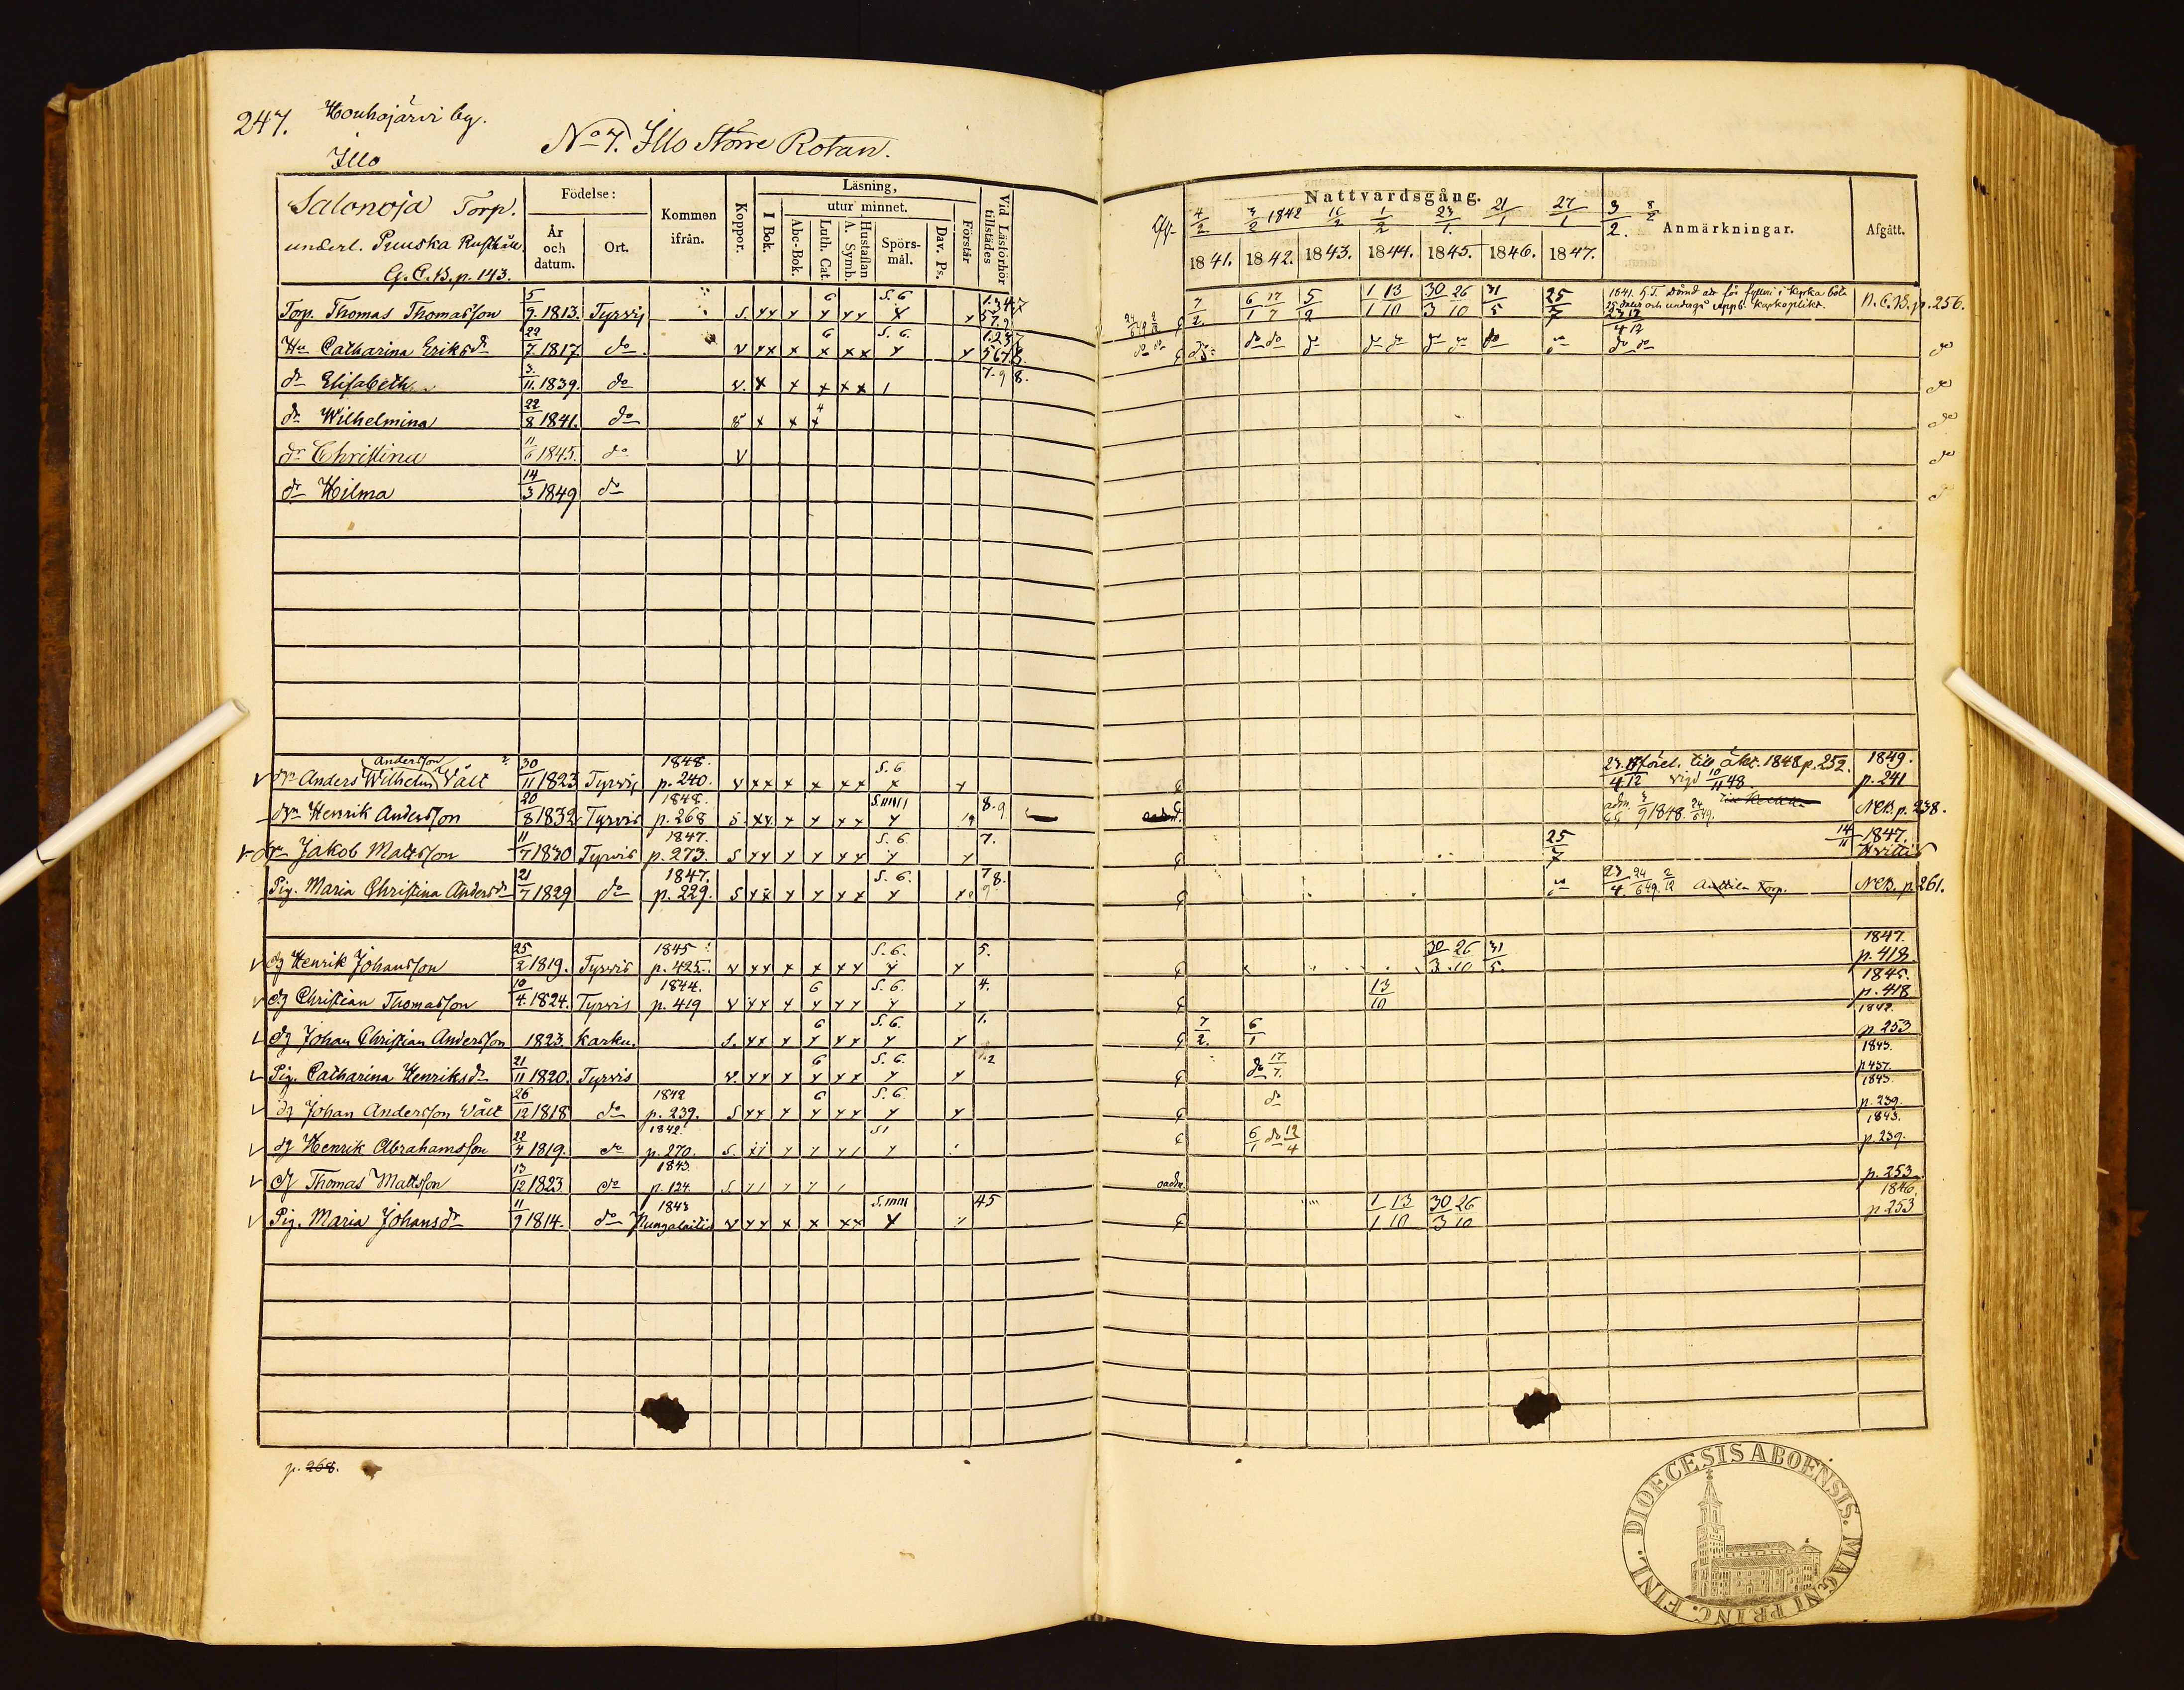 247. Houhajärvi by.
Illo
No 7. Illo Större Rotan.
Salonoja Torp.
underl. Puuska Rusthåll
G.C.B. p. 143.
Födelse:
År och datum.
Ort.
Kommen ifrån.
Koppor.
Läsning,
I Bok.
utur minnet.
Abc-Bok.
Luth. Cat.
A. Symb.
Hustaflan
Spörs-mål.
Dav. Ps.
Förstår
Vid Läsförhör tillstädes
Nattvardsgång.
4/2 3/2 1842 16/2 1/2 23/1. 21/1 27/1 3/2. 8/2
1841. 1842. 1843. 1844. 1845. 1846. 1847.
Anmärkningar.
Afgått.
Torp. Thomas Thomasson 5/9. 1813. Tyrvis S. 6 S. 6 7/2. 6/1 17/7 5/2 1/1 13/10 30/3 26/10 31/5 25/7 N.C.B. p. 256.
Hu Catharina Eriksdr 22/7. 1817 do 6 S. 6. do
dr Elisabeth 3./11. 1839. do 7. 9 8. do
dr Wilhelmina 22/8 1841. do 4 do
dr Christina 11/6 1845. do do
dr Hilma 14/3 1849 do
Andersson
drn Anders Wilhelm Vält 30/11 1823 Tyrvis 1848. p. 240. S. 6 förel. till äkt. 1848 p. 252. vigd 10/11 48 1849. p. 241
drn Henrik Andersson 20/8 1832 Tyrvis 1848. p. 268 8. 9 adm. 3/9 1848. 24/6 49. NCB. p. 238.
drn Jakob Mattsson 11/7 1830 Tyrvis 1847. p. 273. S. 6. 7. 25/7 14/11 1847. Hvittis
Pig. Maria Christina Andersdr 21/7 1829 do 1847. p. 229. S. 6. 7 8. 9 23/4 24/6 49. 2/12 Anttila Torp. NCB. p. 261.
dg Henrik Johansson 25/2 1819. Tyrvis 1845 p. 425. S. 6. 5. 30/3 26/10 31/5. 1847. p. 418.
dg Christian Thomasson 10/4. 1824. Tyrvis 1844. p. 419 6 S. 6. 4. 13/10 1845. p. 418
dg Johan Christian Andersson 1823. Karku. 6 S. 6. 1. 7/2. 6/1 1842. p. 253
Pig. Catharina Henriksdr 21/11 1820. Tyrvis 6 S. 6. 1. 2 do 17/7. 1843. p 457.
dg Johan Andersson Vält 26/12 1818 do 1842 p. 239. 6 S. 6. do 1843. p. 239.
dg Henrik Abrahamsson 22/4 1819. do 1842. p. 270. 6/1 do 12/4 1843. p. 239.
dg Thomas Mattsson 13/12 1823 do 1843. p. 124. oadm. p. 253
Pig. Maria Johansdr 11/9 1814. do 1843 Pungalaitio 45 1/1 13/10 30/3 26/10 1846. p 253
p. 268.
DIOECESIS ABOENSIS. MAGNI PRINC. FINL.